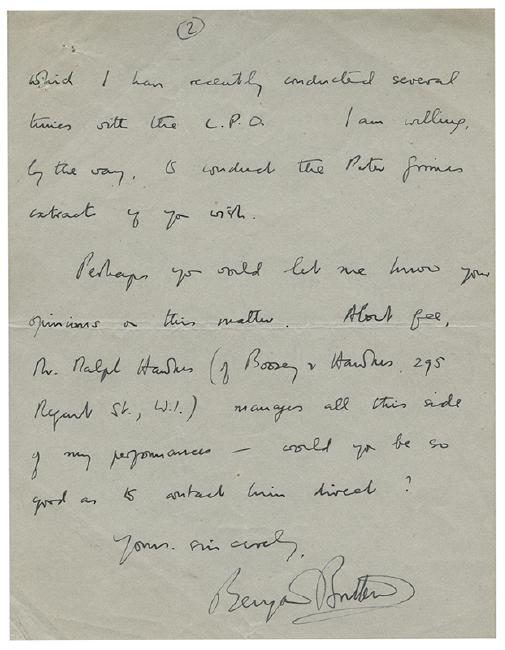 (2)
which I have recently conducted several
times with the L.P.O. I am willing,
by the way, to conduct the Peter Grimes
extract if you wish.
Perhaps you would let me know your
opinions on this matter. About fee,
Mr. Ralph Hawkes (of Boosey & Hawkes, 295
Regent St., W.1.) manages all this side
of my performances — would you be so
good as to contact him direct?
Yours sincerely,
Benjamin Britten